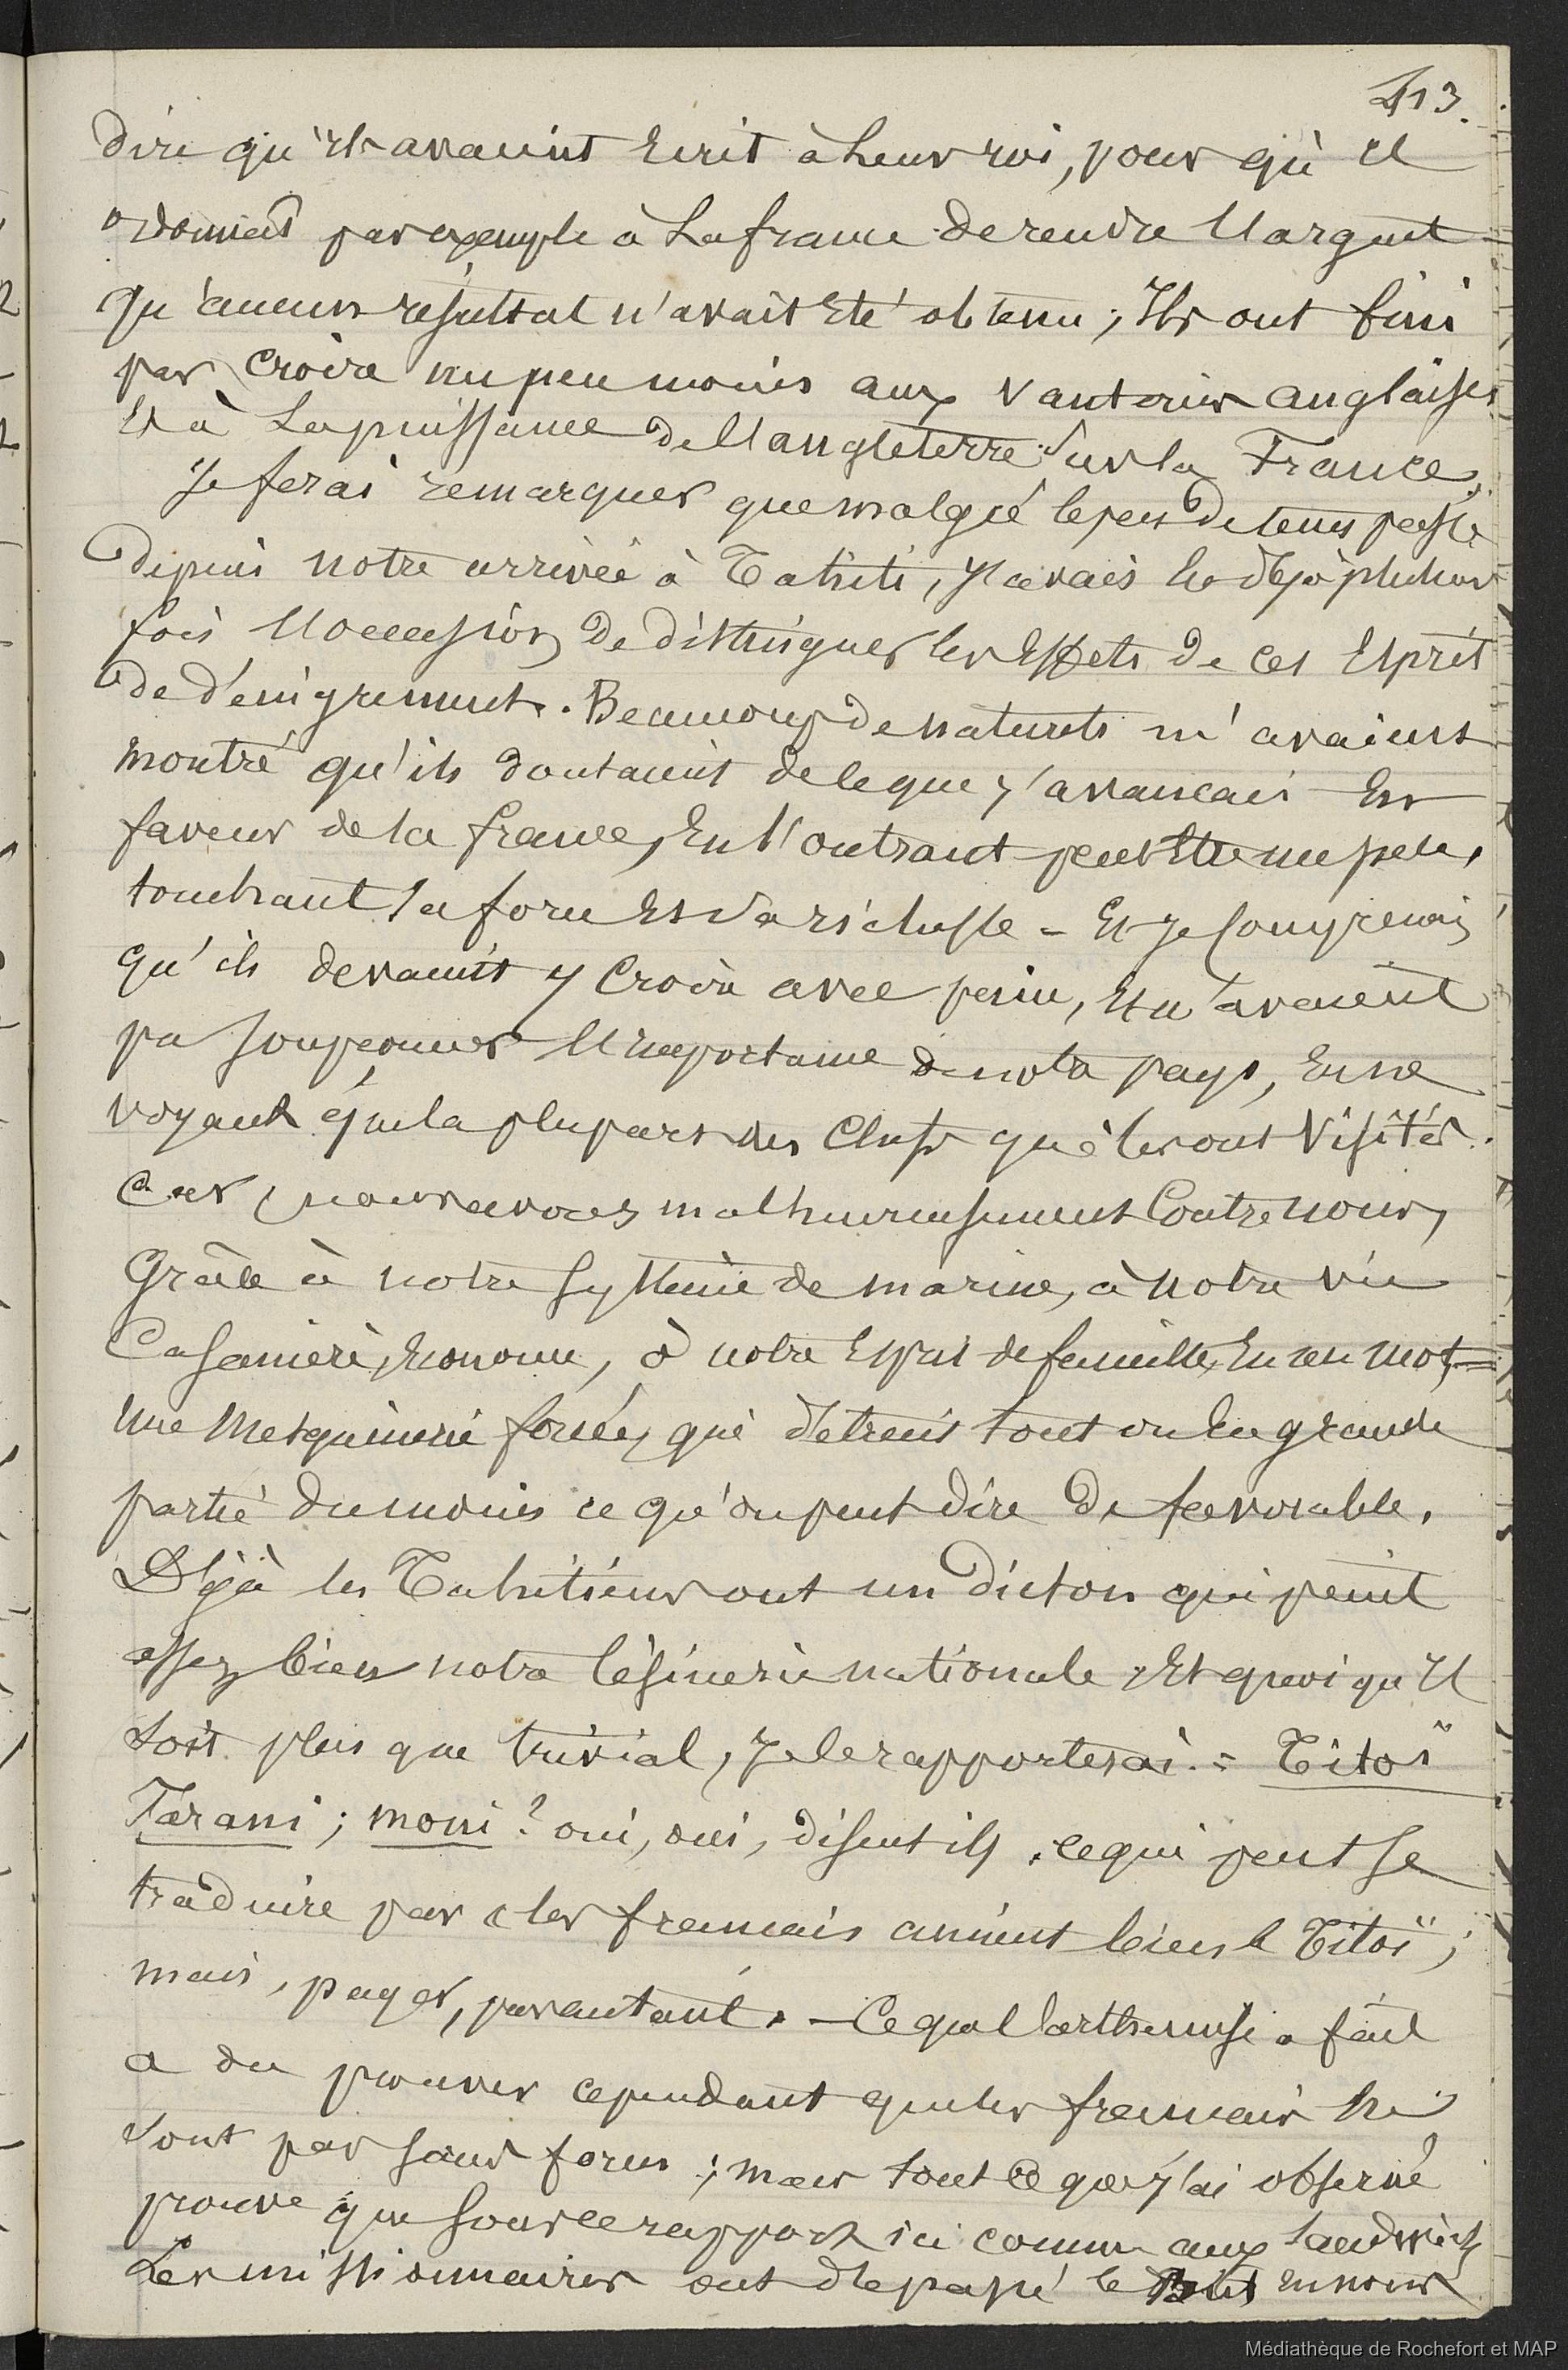 413.
dire qu'ils avaient Ecrit à Leur roi, pour qu'il
ordonnât par exemple à La france de rendre l'argent
qu'aucun résultat n'avait Eté obtenu; Ils ont fini
par croire un peu moins aux vanteries anglaises
Et à La puissance de l'angleterre sur la France.
Je ferai remarquer que malgré le peu de tems passé
depuis notre arrivée à Tahiti, j'avais Eu déjà plusieurs
fois l'occasion de distinguer les Effets de ces Esprit
de dénigrement. Beaucoup de naturels m'avaient
montré qu'ils doutaient de ce que j'avancais En
faveur de la france, En l'outrant peut Etre un peu,
touchant sa force Et sa richesse - Et je comprenais
qu'ils devaient y Croire avec peine, Et n'avaient
pu soupçonner l'importance de notre pays, En ne
voyant que la plupart des Chefs qui les ont Visités.
Car nous avons malheureusement Contre nous,
Grâce à notre système de marine, à notre vie
Casanière, Econome, à notre Esprit de famille, En un mot =
Une Mesquinerie forcée, qui détruit tout ou En grande
partie du moins ce qu'on peut dire de favorable.
Déjà les Tahitiens ont un dicton qui peint
assez bien notre lésinerie nationale, Et quoiqu'il
soit plus que trivial, je le rapporterai. = Titoï
Farani; moni? oui, oui, disent ils. ce qui peut se
traduire par les francais aiment bien le Titoï;
mais, payer, pas autant. - Ce qu'a l'arthemise a fait
a du prouver cependant que les francais ne
sont pas sans force; mais tout ce que j'ai observé
prouve que sous ce rapport ici comme aux Sandwich
Les missionnaires ont dépassé le But En nous
Médiathèque de Rochefort et MAP